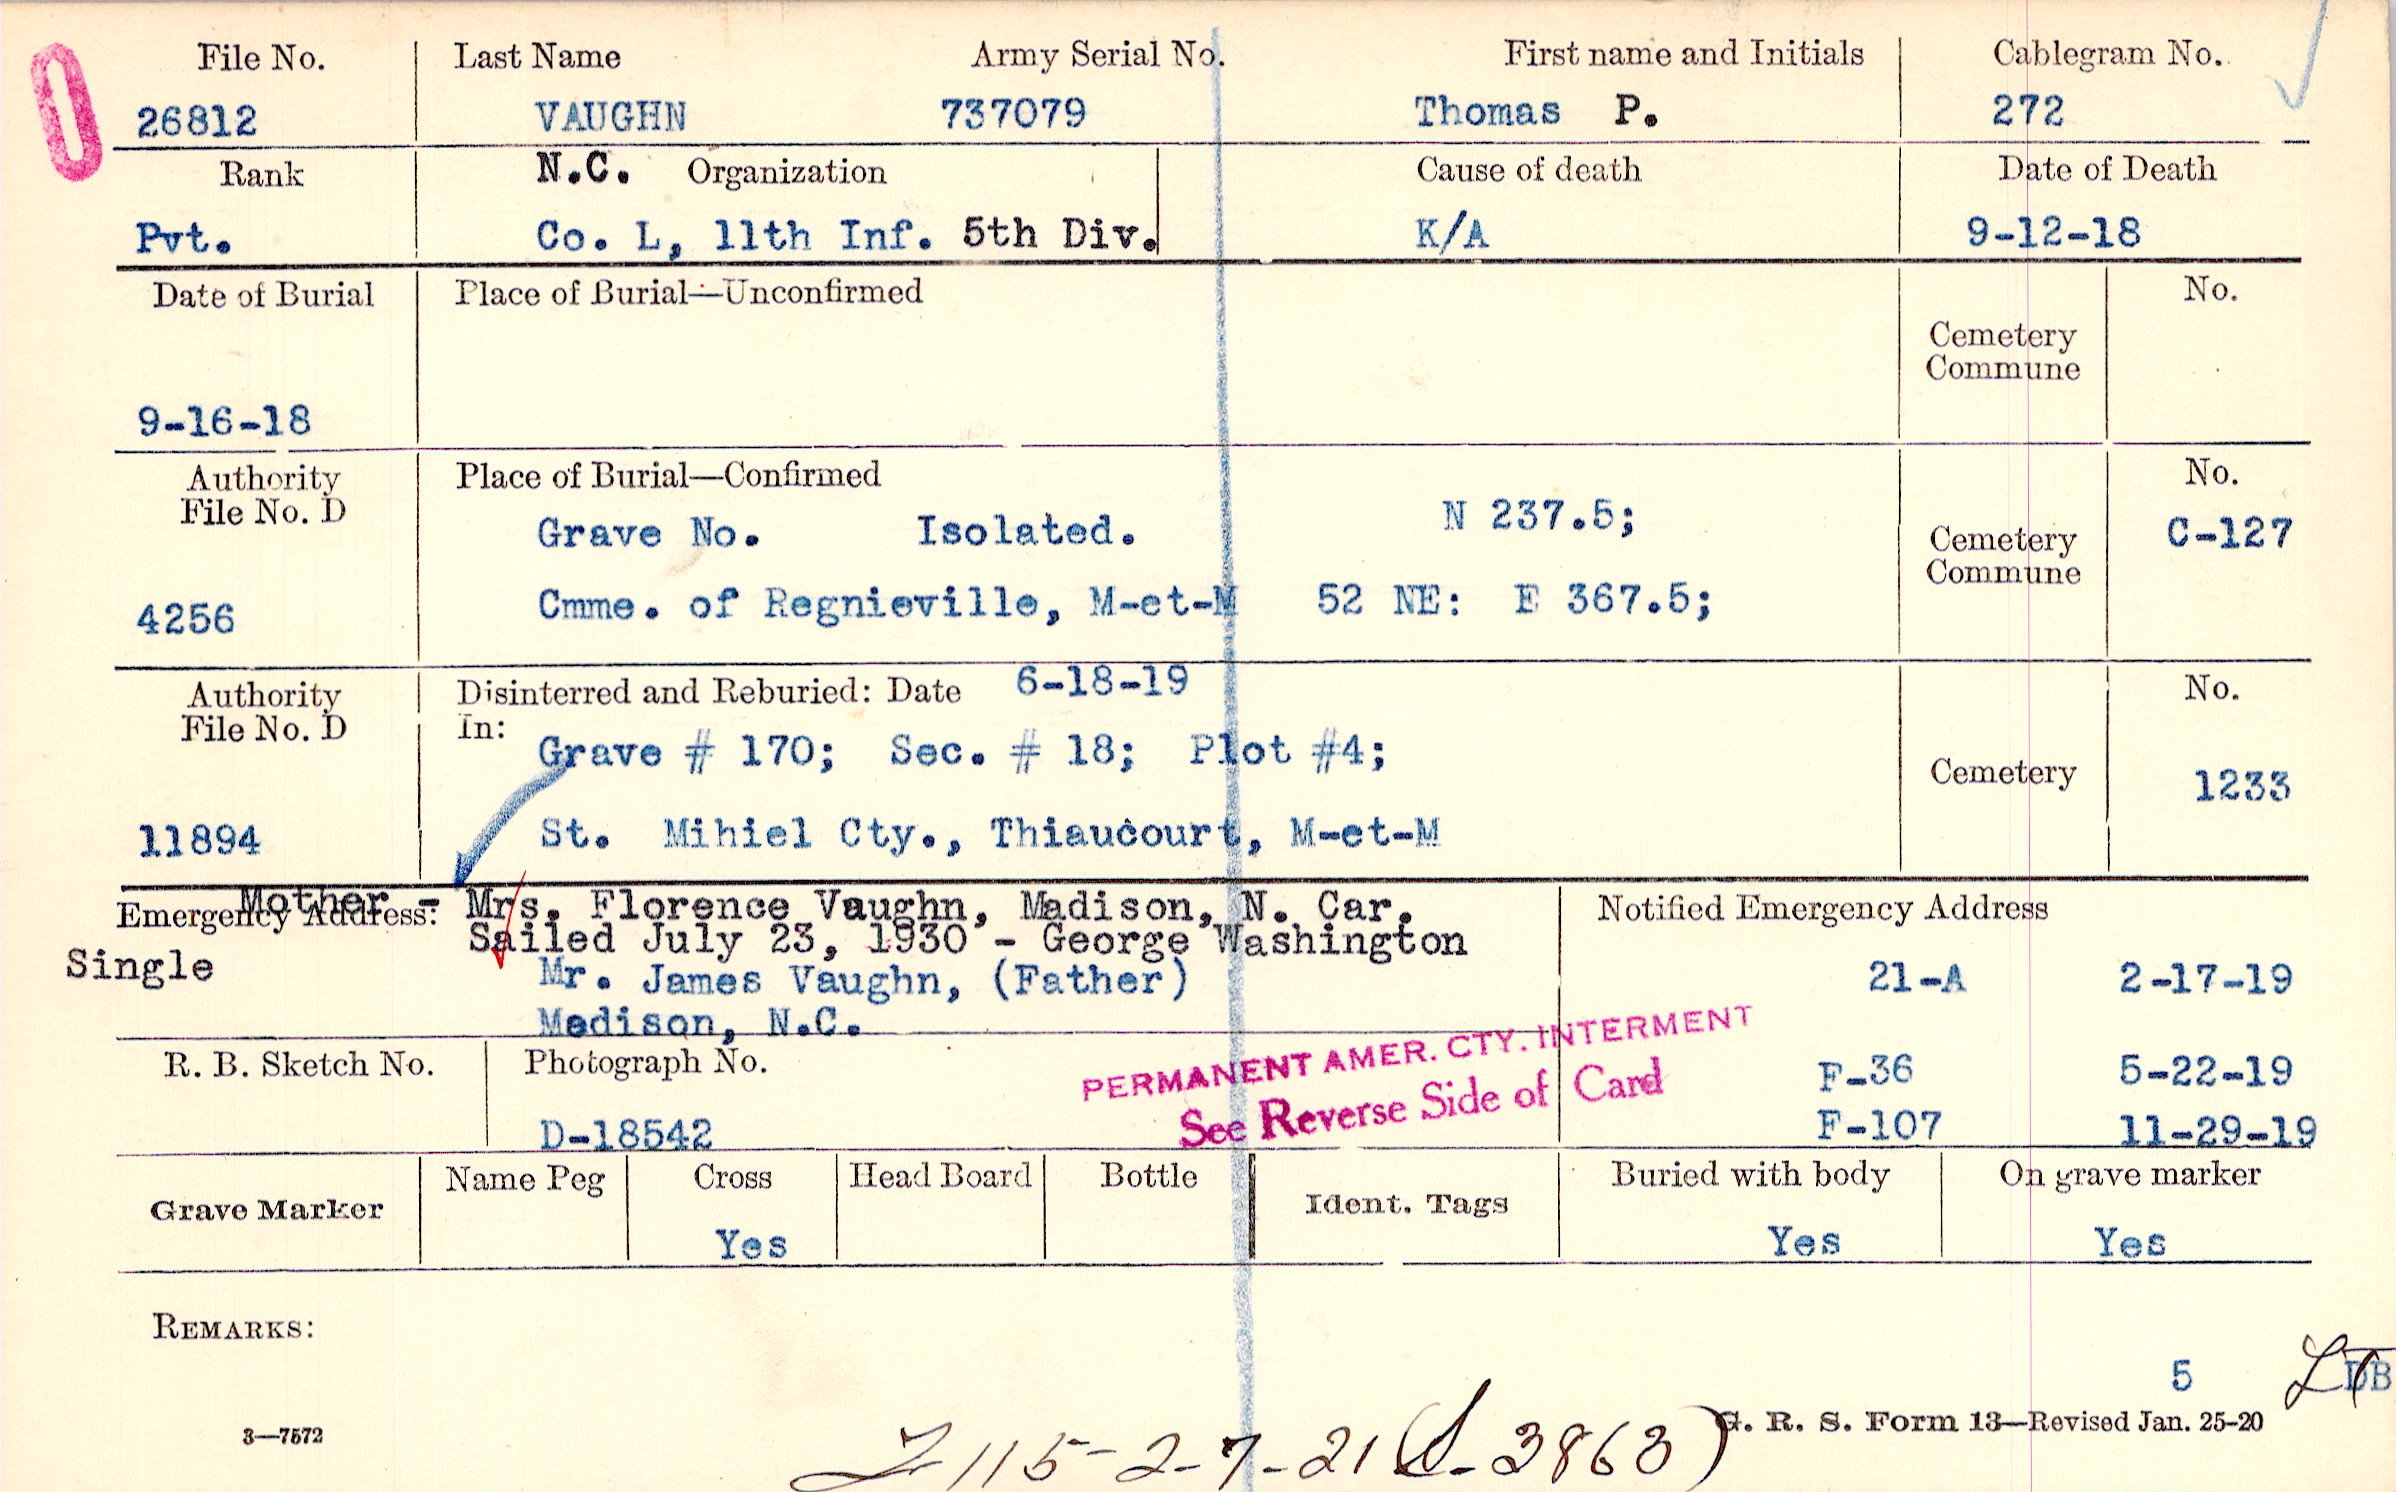 File No. Last Name Army Serial No. First name and Initials Cablegram No.
26812 VAUGHN 737079 Thomas P. 272
Rank N.C. Organization Cause of death Date of Death
Pvt. Co. L, 11th Inf. 5th Div. K/A 9-12-18
Date of Burial Place of Burial—Unconfirmed No.
Cemetery
Commune
9-16-18
Authority Place of Burial—Confirmed No.
File No. D
Grave No. Isolated. N 237.5; Cemetery C-127
Commune
4256 Cmme. of Regnieville, M-et-M 52 NE: E 367.5;
Authority Disinterred and Reburied: Date 6-18-19 No.
File No. D In:
Grave # 170; Sec. # 18; Plot #4; Cemetery 1233
11894 St. Mihiel Cty., Thiaucourt, M-et-M
Emergency Address: Mother - Mrs. Florence Vaughn, Madison, N. Car. Notified Emergency Address
Sailed July 23, 1930 - George Washington
Single Mr. James Vaughn, (Father) 21-A 2-17-19
Madison, N.C.
PERMANENT AMER. CTY. INTERMENT
See Reverse Side of Card
R. B. Sketch No. Photograph No. F-36 5-22-19
D-18542 F-107 11-29-19
Grave Marker Name Peg Cross Head Board Bottle Ident. Tags Buried with body On grave marker
Yes Yes Yes
REMARKS:
5 DB
3—7572 G. R. S. Form 13—Revised Jan. 25-20
115-2-7-21 (S-3863)